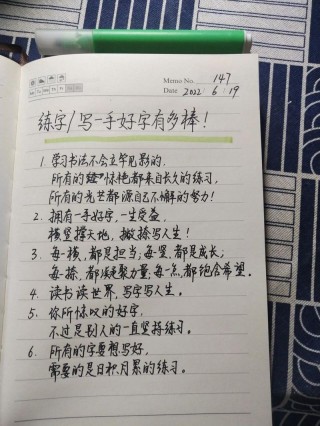 Memo No. 147
Date 2022 6 19
练字/写一手好字有多棒!
1. 学习书法不会立竿见影的,
所有的惊艳都来自长久的练习,
所有的光芒都源自不懈的努力!
2. 拥有一手好字,一生受益,
横竖撑天地,撇捺写人生!
3. 每一横,都是担当,每一竖,都是成长;
每一捺,都凝聚力量,每一点,都饱含希望。
4. 读书读世界,写字写人生。
5. 你所惊叹的好字,
不过是别人的一直坚持练习。
6. 所有的字要想写好,
需要的是日积月累的练习。